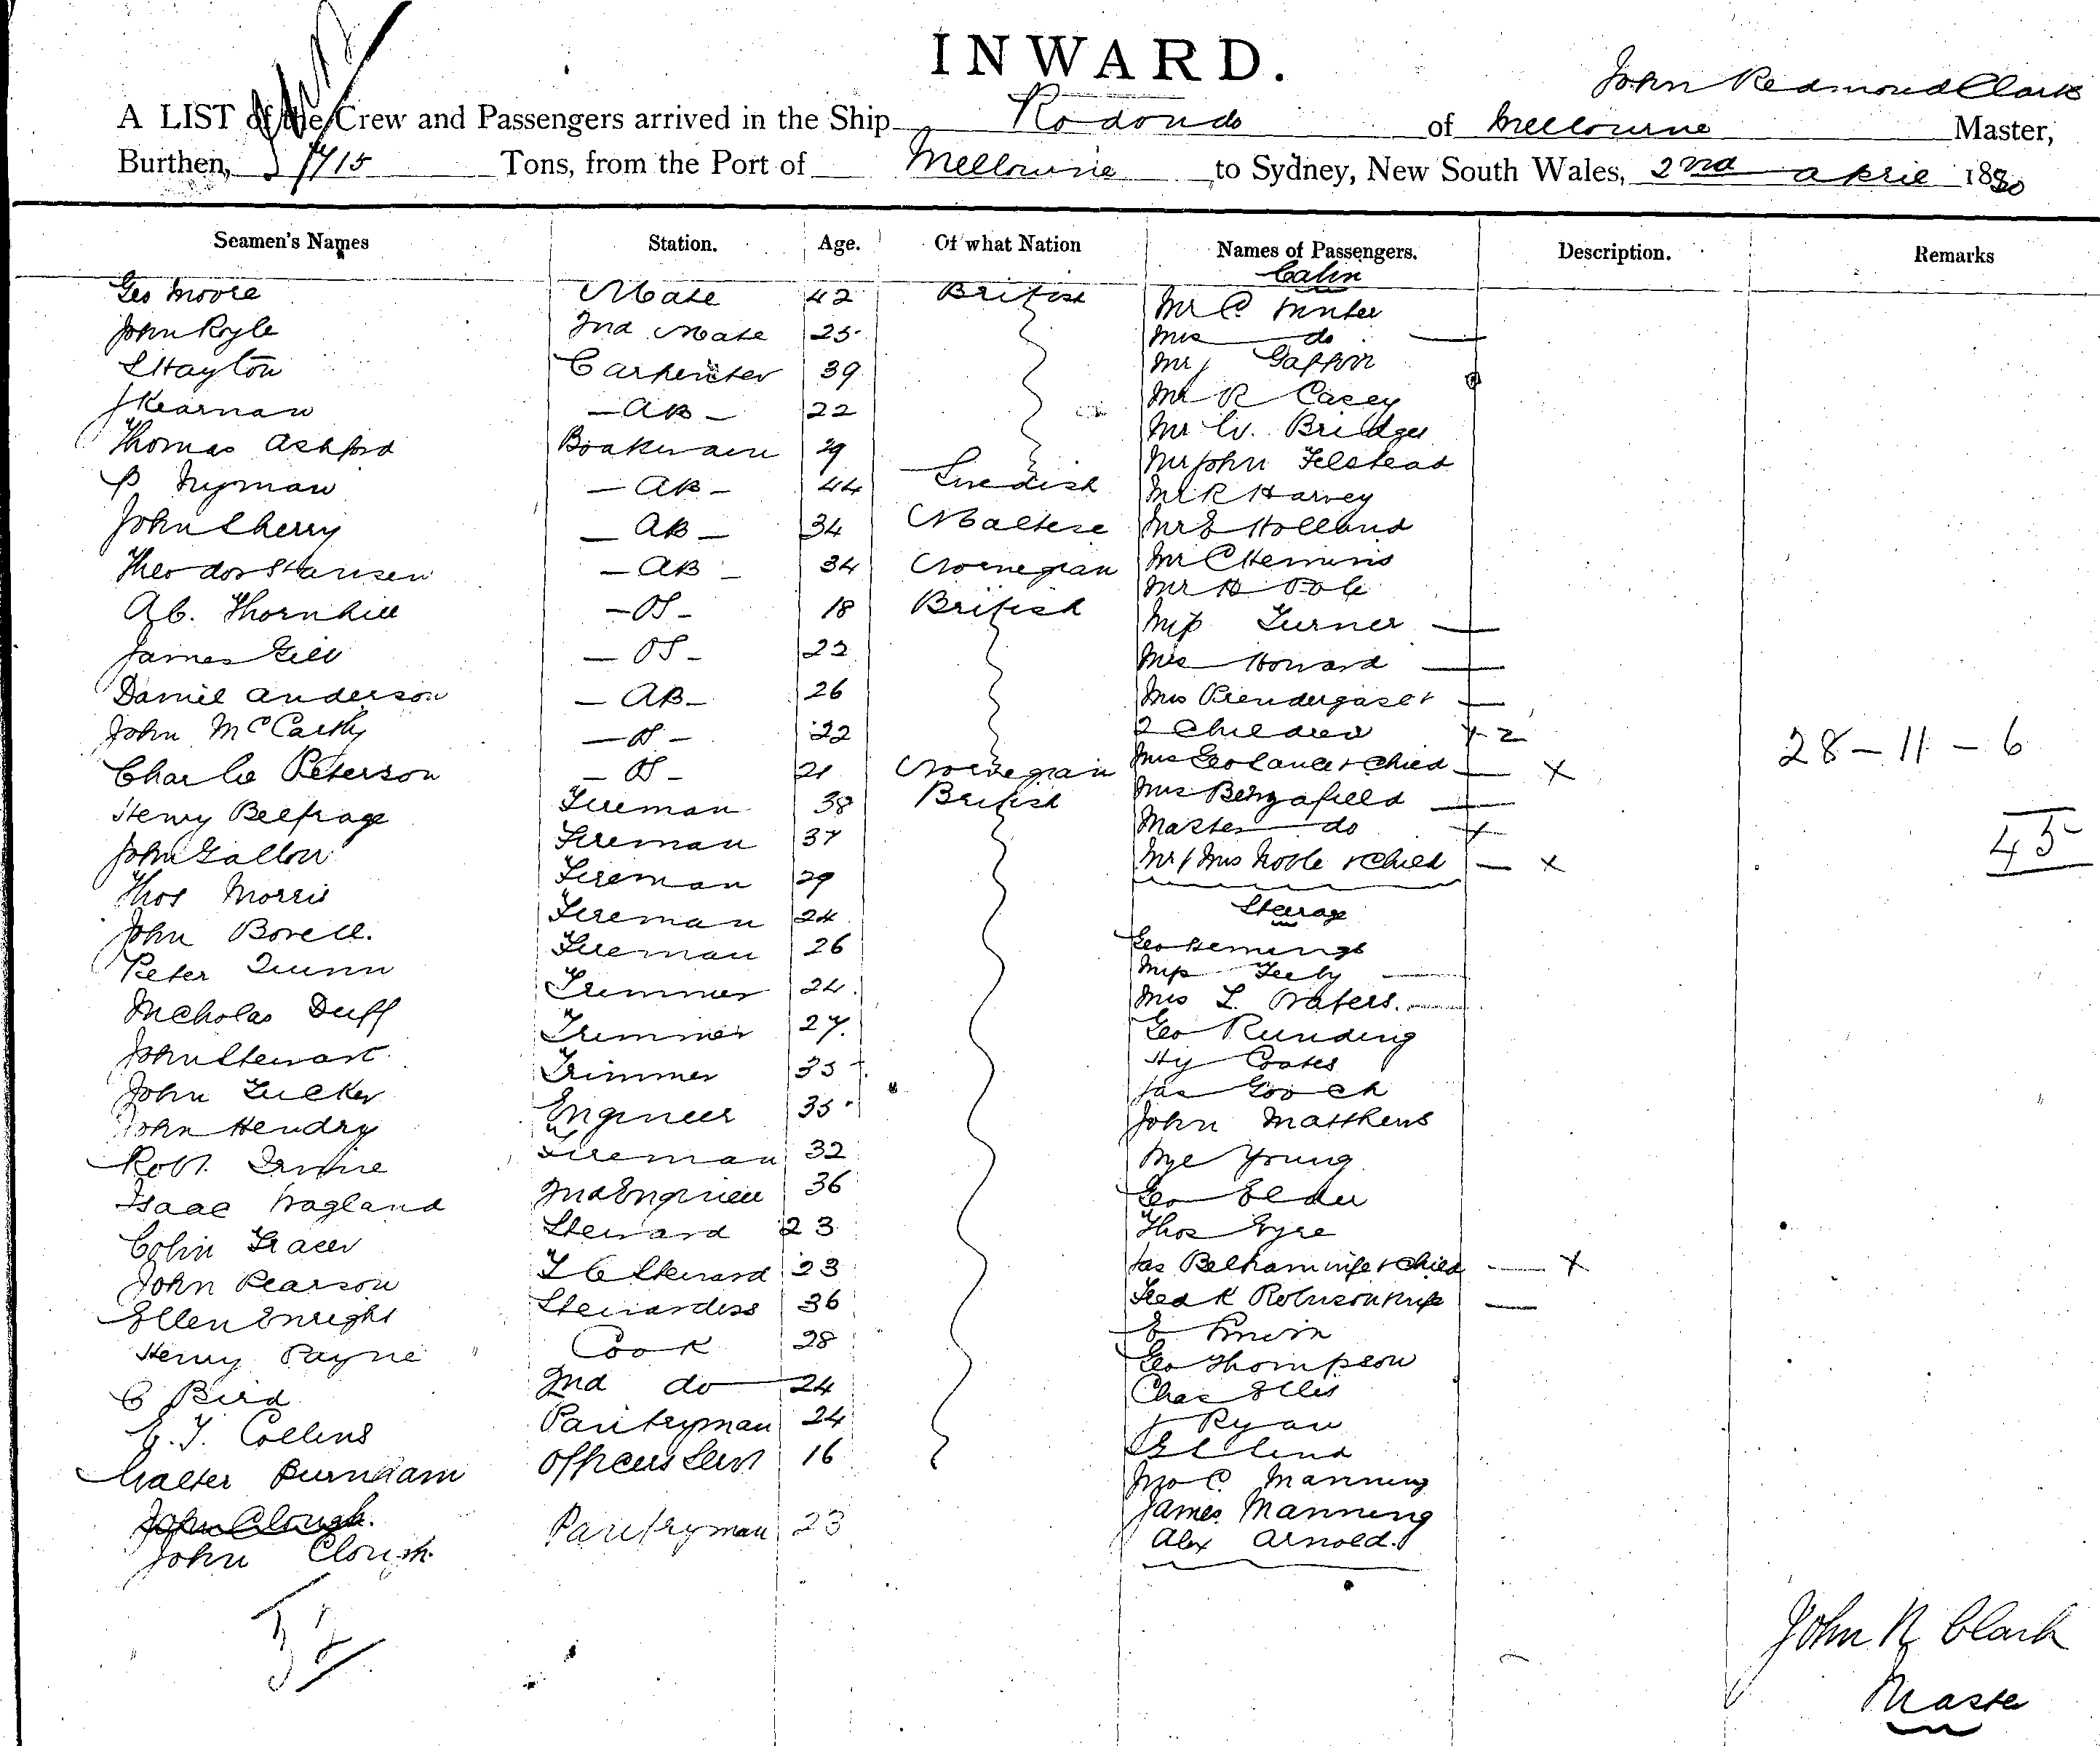 INWARD.
John Redmond Clark
A LIST of the Crew and Passengers arrived in the Ship Rodondo of Melbourne Master,
Burthen, 715 Tons, from the Port of Melbourne to Sydney, New South Wales, 2nd April 1880
Seamen's Names Station. Age. Of what Nation Names of Passengers. Description. Remarks
Cabin
Geo Moore Mate 42 British
John Ryle 2nd Mate 25
S Hayton Carpenter 39
J Kearnan AB 22
Thomas Ashford Boatswain 29
P Nyman AB 44 Swedish
John Cherry AB 34 Maltese
Theodor Hansen AB 34 Norwegian
Ab. Thornhill OS 18 British
James Gill OS 22
Daniel Anderson AB 26
John McCarthy OS 22
Charlie Peterson OS 21 Norwegian
Henry Belfrage Fireman 38 British
John Gallon Fireman 37
Thos Morris Fireman 29
John Bovell. Fireman 24
Peter Quinn Fireman 26
Nicholas Duff Trimmer 24
John Stewart Trimmer 27
John Tucker Trimmer 35
John Hendry Engineer 35
Robt. Irvine Fireman 32
Isaac Wagland 2nd Engineer 36
Colin Fraser Steward 23
John Pearson F C Steward 23
Ellen Enright Stewardess 36
Henry Payne Cook 28
C Bird 2nd do 24
E. J. Collins Pantryman 24
Walter Burnham Officers Servt 16
John Clough.
John Clough. Pantryman 23
32
Mr C.
Mrs do
Mr J
Mr R Casey
Mr W. Bridges
Mr John Felstead
Mr R Harvey
Mr E Holland
Mr C Hemins
Mr H Pole
Miss Turner
Mrs Howard
Mrs Prendergast &
2 Children 2
Mrs & Child x
Mrs
Master do
Mr & Mrs Noble & Child x
Steerage
Geo Hemings
Miss Feely
Mrs L Waters.
Geo Runding
Hy Coates
Jas Gooch
John Matthews
Young
Geo Elder
Thos Eyre
Jas Belham wife & Child x
Fredk Robinson wife
E
Geo Thompson
Chas Ellis
J Ryan
Jno C. Manning
James Manning
Alex Arnold.
28-11-6
45
John R Clark
Master